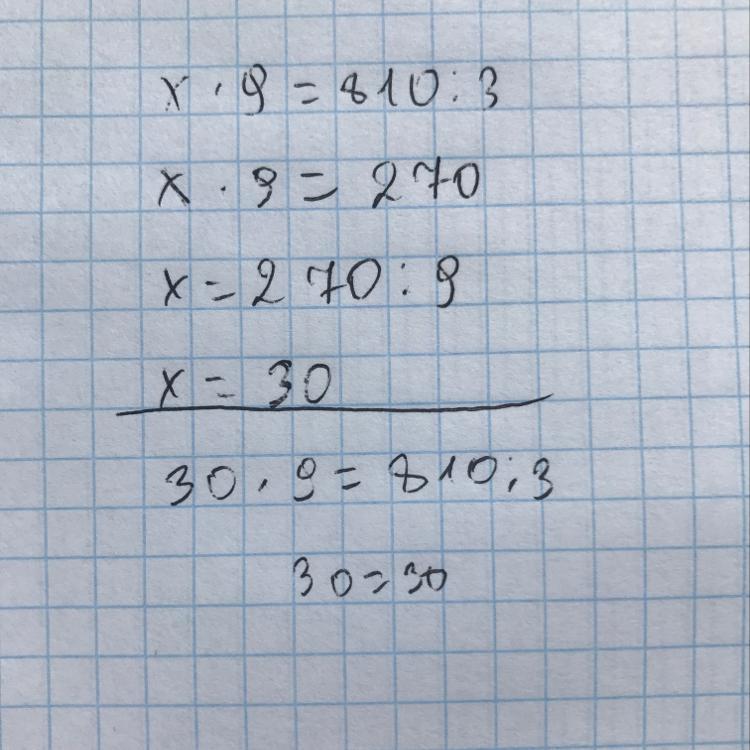 x · 9 = 810 : 3
x · 9 = 270
x = 270 : 9
x = 30
30 · 9 = 810 : 3
30 = 30